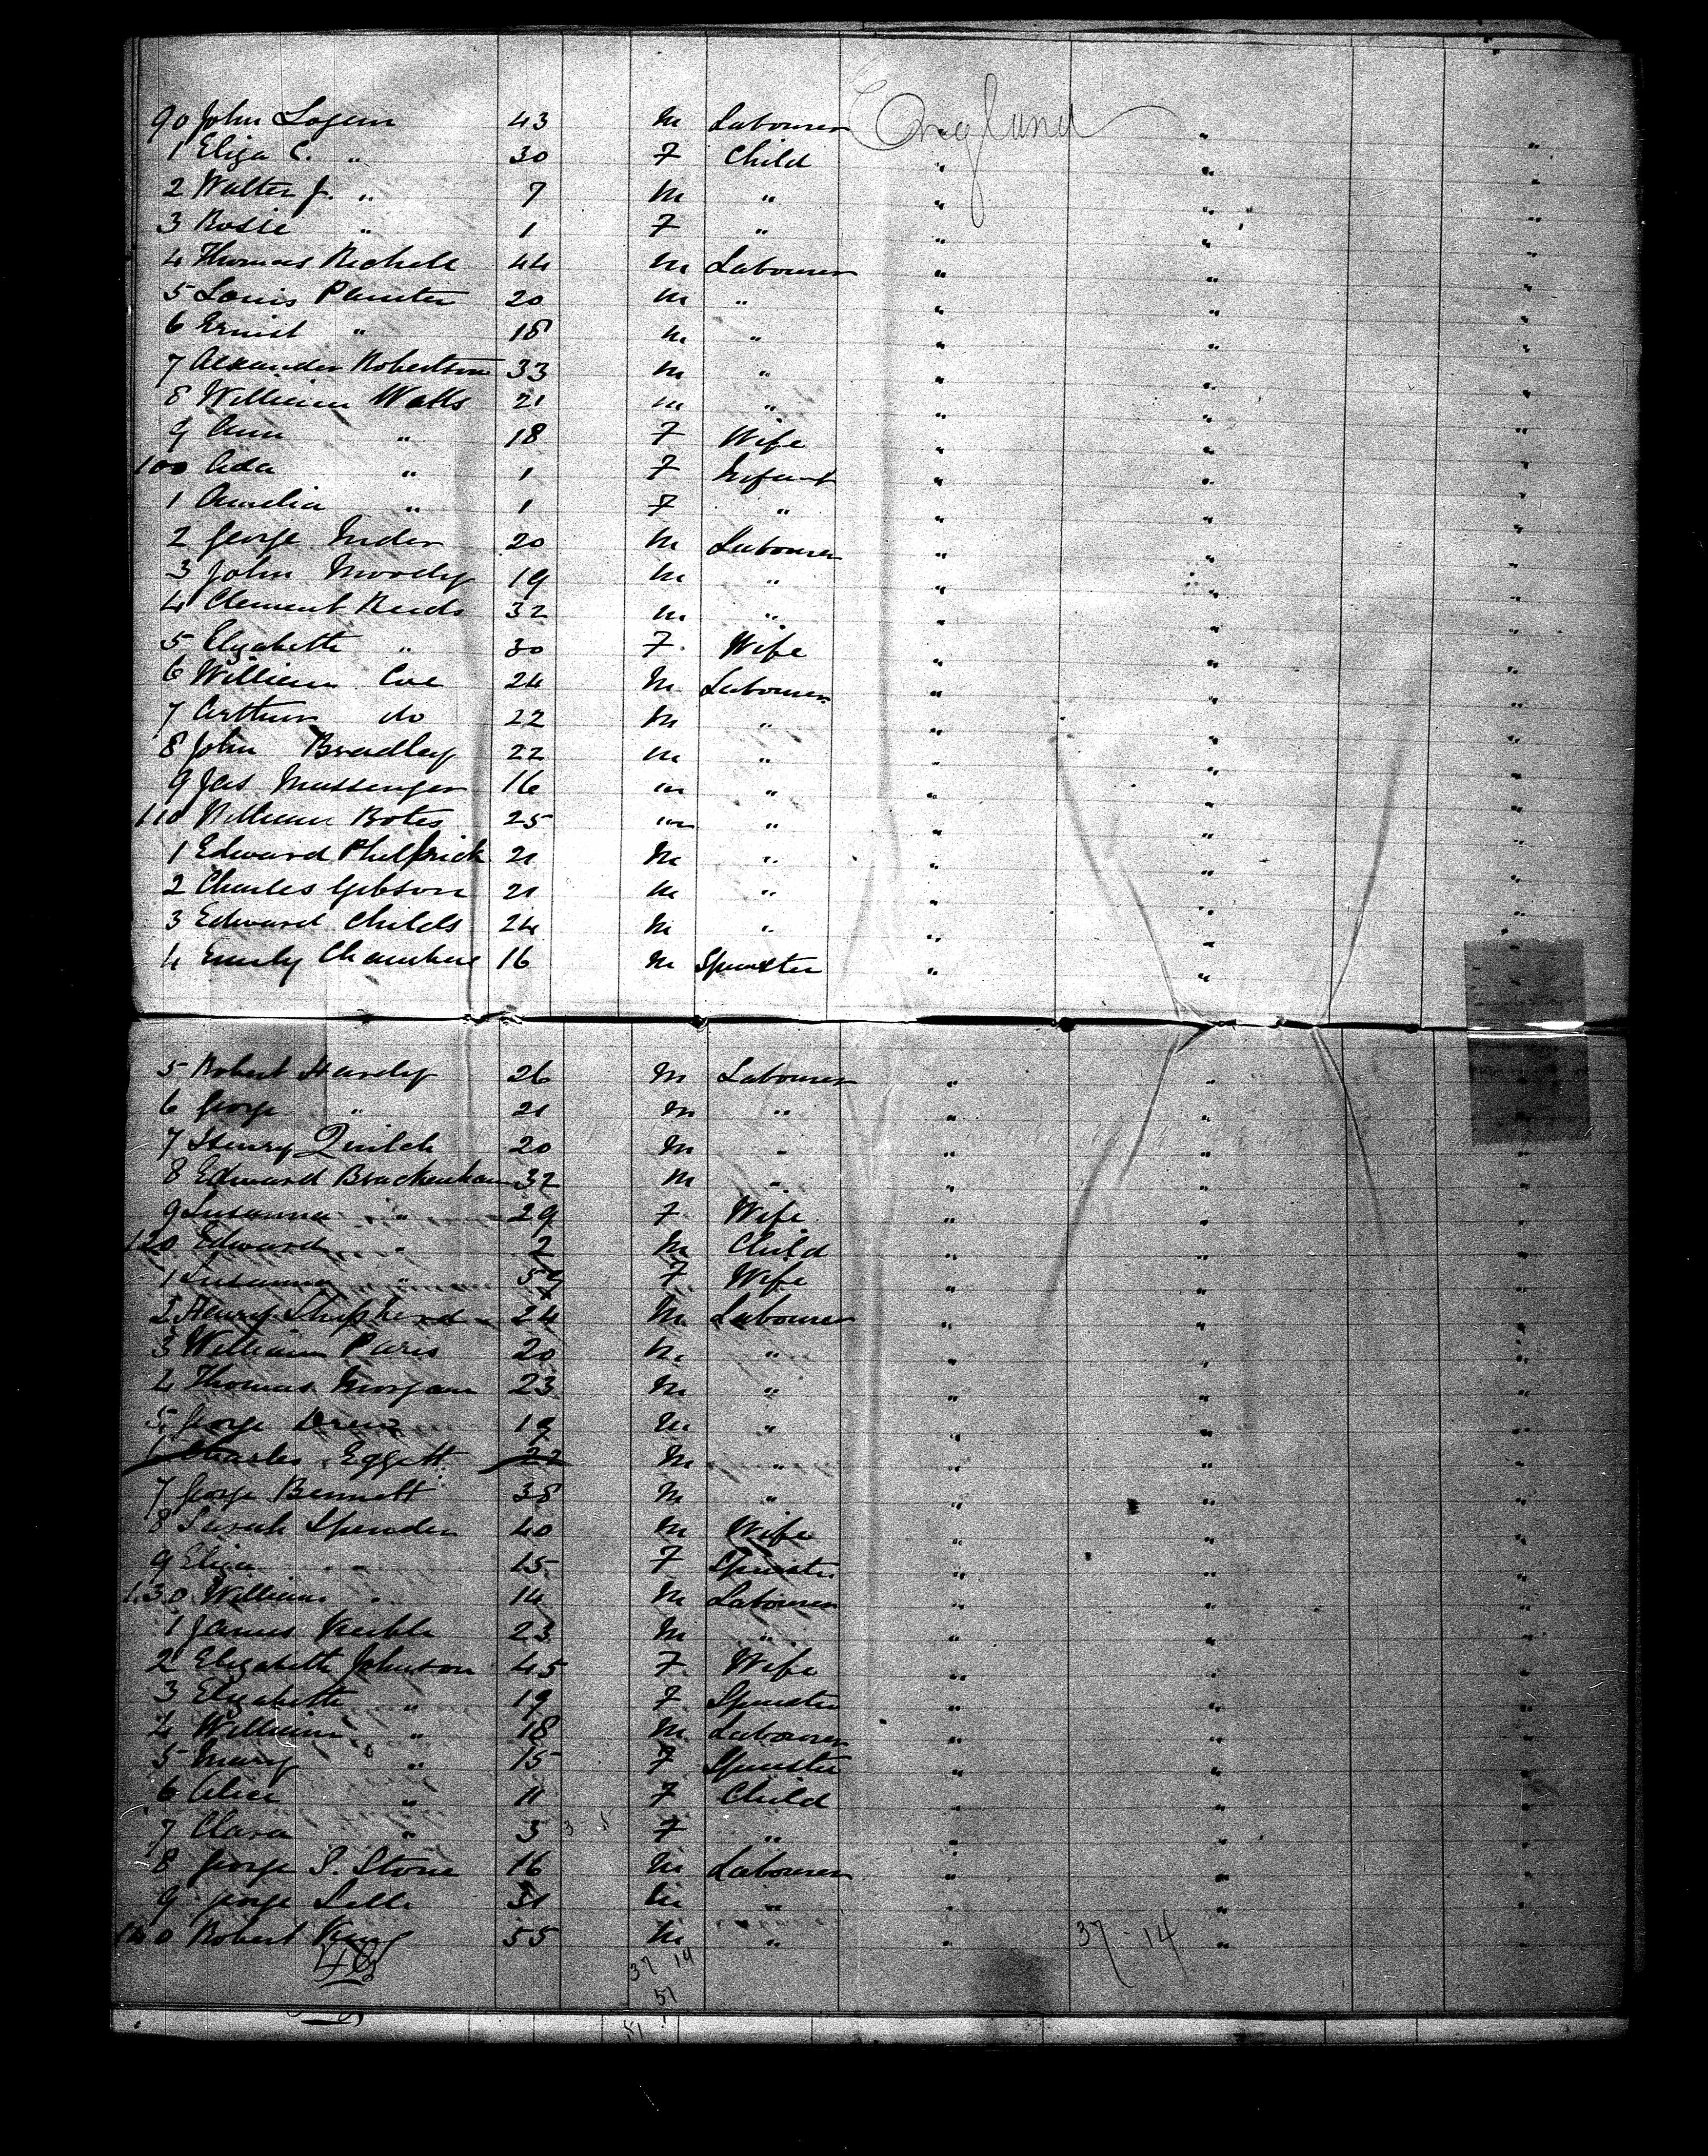 90 John Logem 43 M Labourer England "
1 Eliza C. " 30 F Child " " "
2 Walter J. " 7 M " " " "
3 Rosie " 1 F " " " "
4 Thomas 44 M Labourer " " "
5 Louis Painter 20 M " " " "
6 Ernist " 18 M " " " "
7 Alexander Robertson 33 M " " " "
8 William Watts 21 M " " " "
9 Ann " 18 F Wife " " "
100 Ada " 1 F Infant " " "
1 Amelia " 1 F " " " "
2 George Inder 20 M Labourer " " "
3 John 19 M " " " "
4 Clement Reeds 32 M " " " "
5 Elizabeth " 30 F Wife " " "
6 William Coe 24 M Labourer " " "
7 Arthur do 22 M " " " "
8 John Bradley 22 M " " " "
9 Jas Massenger 16 M " " " "
110 William Botes 25 M " " " "
1 Edward Philprick 21 M " " " "
2 Charles Gibson 21 M " " " "
3 Edward Childs 24 M " " " "
4 Emily Chambers 16 M Spinster " "
5 Robert Hardy 26 M Labourer " "
6 George " 21 M " " "
7 Henry Quilch 20 M " " " "
8 Edward Brackenham 32 M " " " "
9 Susanna " 29 F Wife " " "
120 Edward " 2 M Child " " "
1 Susanna " 59 F Wife " " "
2 Henry Shepherd 24 M Labourer " " "
3 William Paris 20 M " " " "
4 Thomas Morgan 23 M " " " "
5 George Drew 19 M " " " "
6 Charles Eggett 22 M " " " "
7 George Bennett 38 M " " " "
8 Sarah Spender 40 M Wife " " "
9 Eliza " 15 F Spinster " " "
130 William " 14 M Labourer " " "
1 James Keeble 23 M " " " "
2 Elizabeth Johnson 45 F Wife " " "
3 Elizabeth " 19 F Spinster " " "
4 William " 18 M Labourer " " "
5 Mary " 15 F Spinster " " "
6 Alice " 11 F Child " " "
7 Clara " 3 F " " " "
8 George S. Stone 16 M Labourer " " "
9 George 31 M " " " "
140 Robert King 55 M " " 37-14 " "
37 14
51